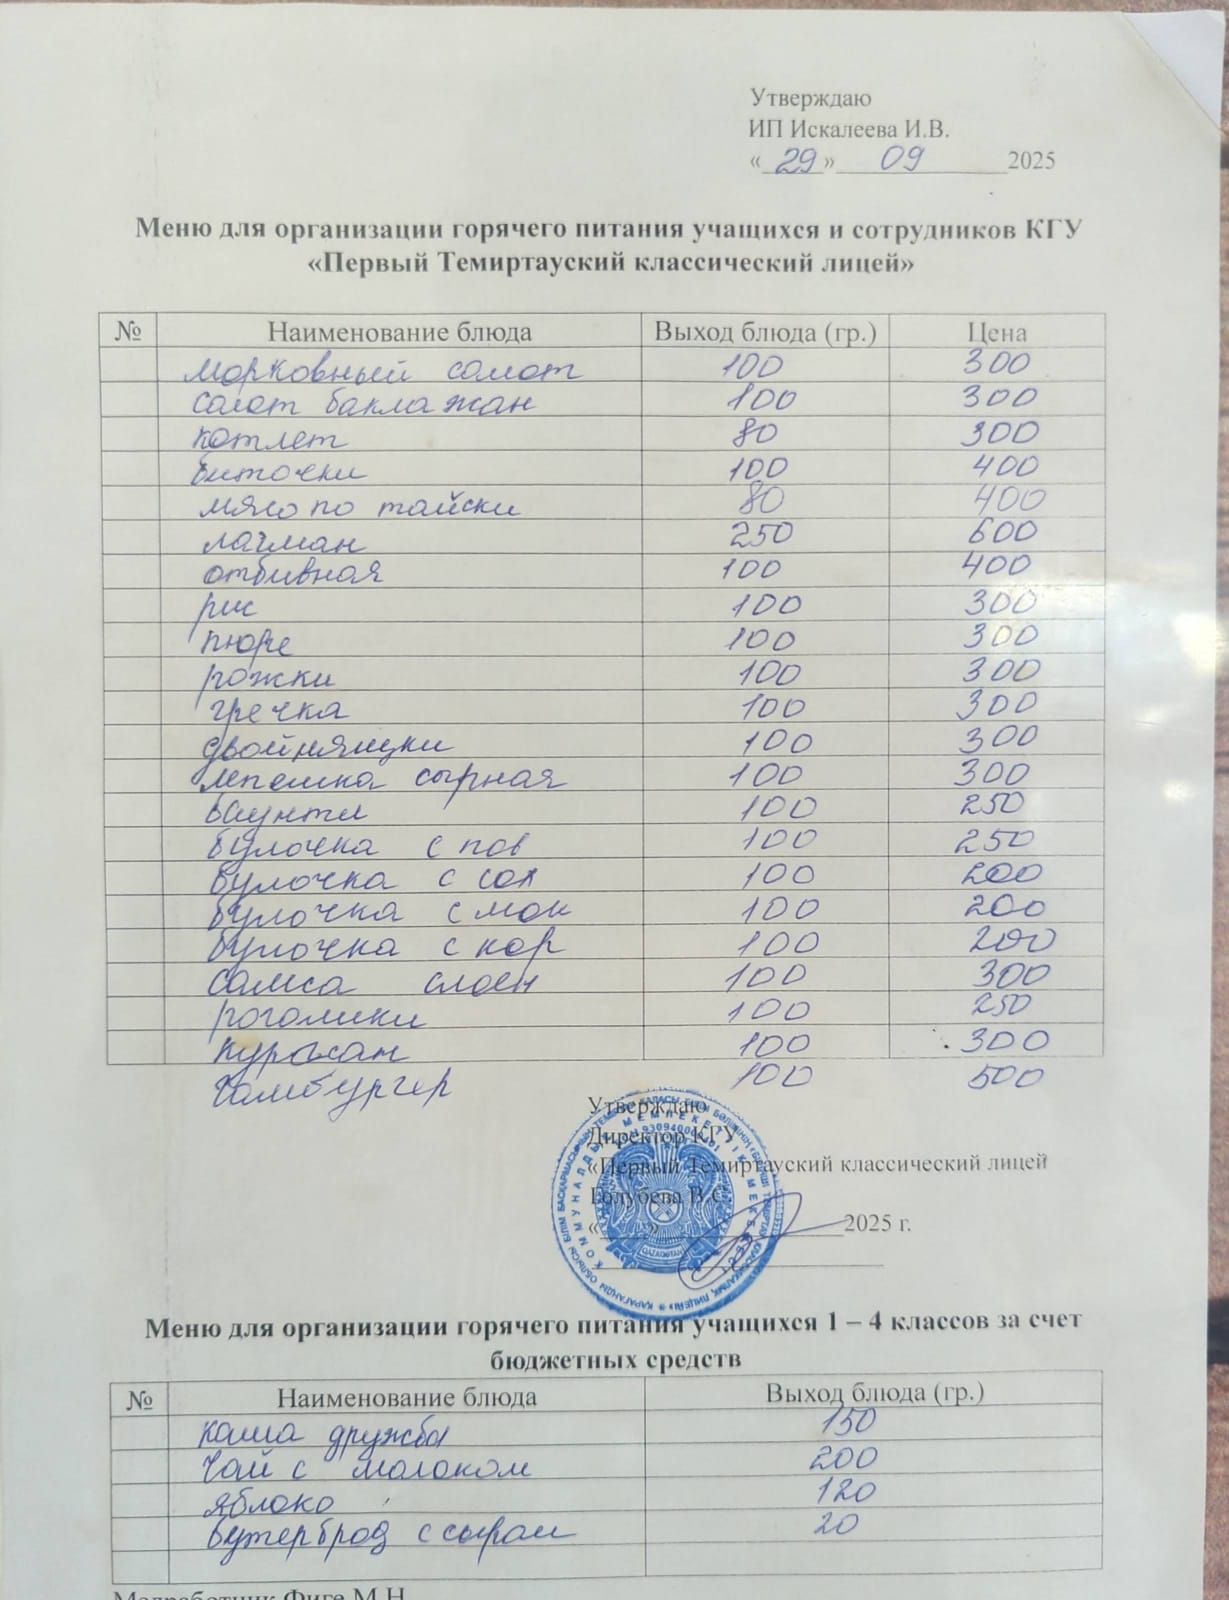 Утверждаю
ИП Искалеева И.В.
«29» 09 2025
Меню для организации горячего питания учащихся и сотрудников КГУ
«Первый Темиртауский классический лицей»
№ Наименование блюда Выход блюда (гр.) Цена
морковный салат 100 300
салат баклажан 100 300
котлет 80 300
биточки 100 400
мясо по тайски 80 400
лагман 250 600
отбивная 100 400
рис 100 300
пюре 100 300
рожки 100 300
гречка 100 300
двойняшки 100 300
лепешка сырная 100 300
баунти 100 250
булочка с пов 100 250
булочка с сах 100 200
булочка с мак 100 200
булочка с кор 100 200
самса слоен 100 300
рогалики 100 250
курасан 100 300
гамбургер 100 500
Утверждаю
Директор КГУ
«Первый Темиртауский классический лицей
Голубева В.С.
«____»____2025 г.
QAZAQSTAN
Меню для организации горячего питания учащихся 1 – 4 классов за счет
бюджетных средств
№ Наименование блюда Выход блюда (гр.)
каша дружба 150
чай с молоком 200
яблоко 120
бутерброд с сыром 20
Медработник Фиге М.Н.